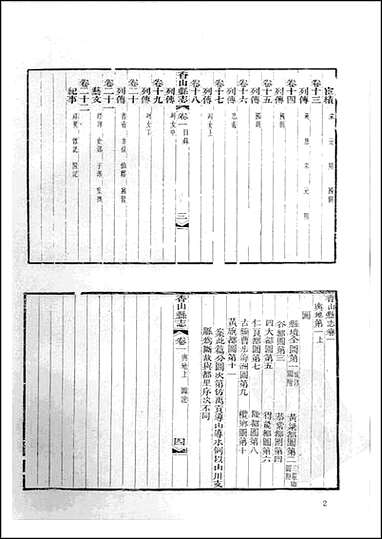 宦積 宋 元 明 國朝
卷十三
列傳 宋 元 明
卷十四
列傳 國朝
卷十五
列傳 國朝
卷十六
列傳
卷十七
列傳 列女上
卷十八
列傳 列女中
香山縣志 卷一 目錄 三
卷十九
列傳 列女下
卷二十
列傳
卷二十一
藝文
卷二十二
紀事
香山縣志卷一
輿地第一上
圖
縣境全圖第一
黃梁都圖第二
谷都圖第三
恭常都圖第四
四大都圖第五
得能都圖第六
仁良都圖第七
隆都圖第八
古鎮曹步海洲圖第九
欖鄉圖第十
黃旗都圖第十一
案此篇分圖次第仿禹貢導山導水例以山川支
脈爲斷故與都里序次不同
香山縣志 卷一 輿地上 圖說 四
2